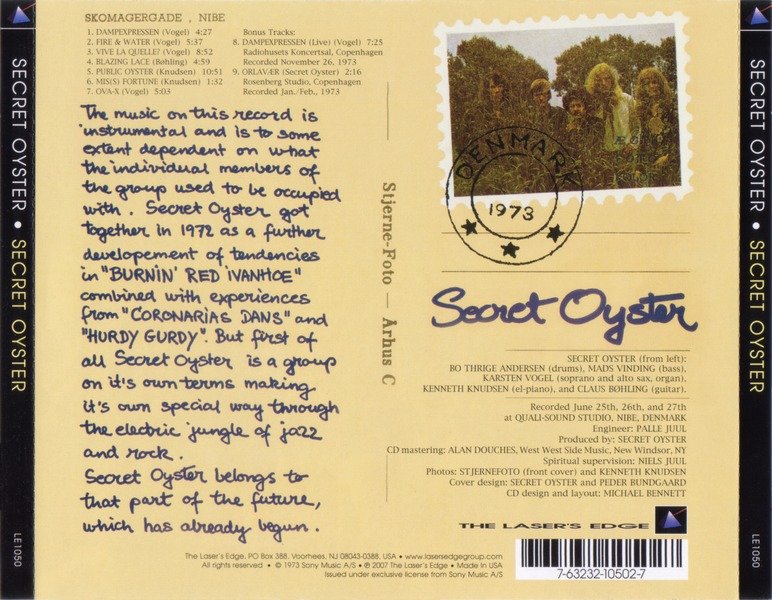 SECRET OYSTER • SECRET OYSTER
LE1050
SKOMAGERGADE , NIBE
1. DAMPEXPRESSEN (Vogel) 4:27
2. FIRE & WATER (Vogel) 5:37
3. VIVE LA QUELLE? (Vogel) 8:52
4. BLAZING LACE (Bøhling) 4:59
5. PUBLIC OYSTER (Knudsen) 10:51
6. MIS(S) FORTUNE (Knudsen) 1:32
7. OVA-X (Vogel) 5:03
Bonus Tracks:
8. DAMPEXPRESSEN (Live) (Vogel) 7:25
Radiohusets Koncertsal, Copenhagen
Recorded November 26, 1973
9. ORLAVÆR (Secret Oyster) 2:16
Rosenberg Studio, Copenhagen
Recorded Jan./Feb., 1973
The music on this record is
instrumental and is to some
extent dependent on what
the individual members of
the group used to be occupied
with. Secret Oyster got
together in 1972 as a further
developement of tendencies
in "BURNIN' RED IVANHOE"
combined with experiences
from "CORONARIAS DANS" and
"HURDY GURDY". But first of
all Secret Oyster is a group
on it's own terms making
it's own special way through
the electric jungle of jazz
and rock.
Secret Oyster belongs to
that part of the future,
which has already begun.
Stjerne-Foto — Århus C
DENMARK
1973
Secret Oyster
SECRET OYSTER (from left):
BO THRIGE ANDERSEN (drums), MADS VINDING (bass),
KARSTEN VOGEL (soprano and alto sax, organ),
KENNETH KNUDSEN (el-piano), and CLAUS BØHLING (guitar).
Recorded June 25th, 26th, and 27th
at QUALI-SOUND STUDIO, NIBE, DENMARK
Engineer: PALLE JUUL
Produced by: SECRET OYSTER
CD mastering: ALAN DOUCHES, West West Side Music, New Windsor, NY
Spiritual supervision: NIELS JUUL
Photos: STJERNEFOTO (front cover) and KENNETH KNUDSEN
Cover design: SECRET OYSTER and PEDER BUNDGAARD
CD design and layout: MICHAEL BENNETT
THE LASER'S EDGE
The Laser's Edge, PO Box 388, Voorhees, NJ 08043-0388, USA • www.lasersedgegroup.com
All rights reserved • © 1973 Sony Music A/S • ℗ 2007 The Laser's Edge • Made In USA
Issued under exclusive license from Sony Music A/S
7-63232-10502-7
SECRET OYSTER • SECRET OYSTER
LE1050